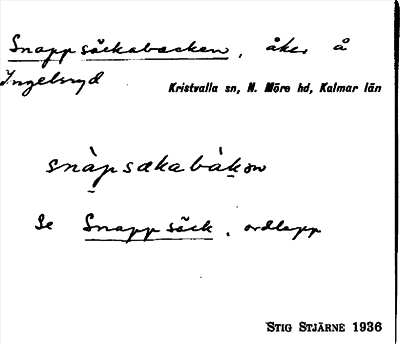 Snappsäckabacken, åker å
Ingelsryd
Kristvalla sn, N. Möre hd, Kalmar län
snàpsækabàkən
Se Snappsäck, ordlapp
STIG STJÄRNE 1936